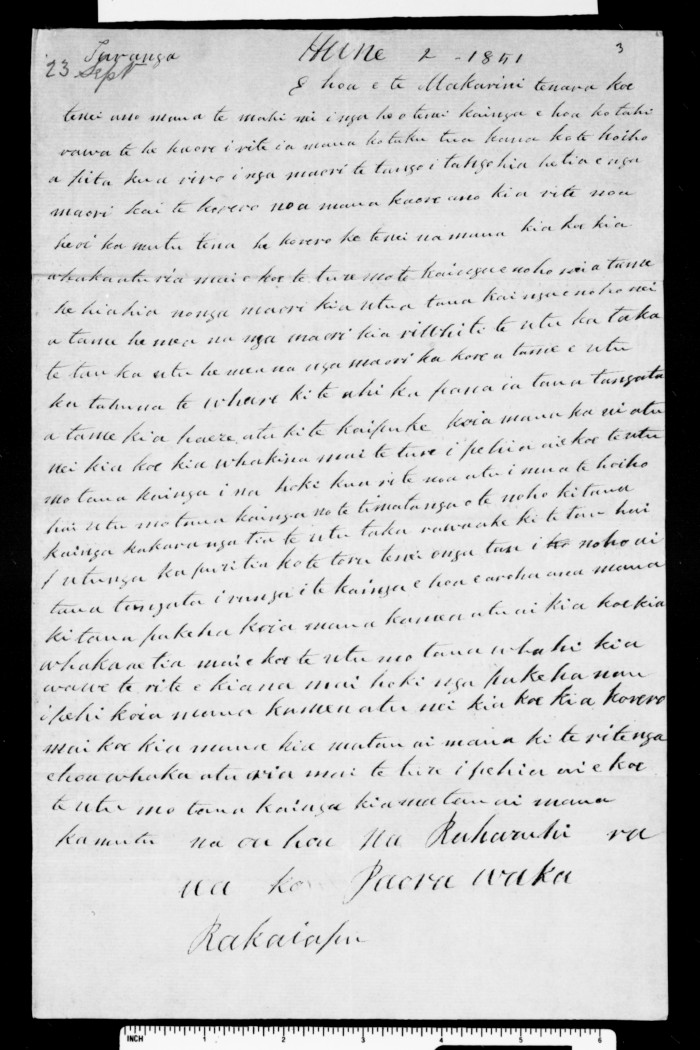 Turanga
23 Sept
Hune 2 - 1851
3
E hoa e te Makarini tenara koe
tenei ano maua te mahi nei i nga he o tenei kainga e hoa ko tahi
rawa te he kaore i rite ia maua ko taku tua kana ko te hoiho
a pita kua riro i nga maori te tango i tangohia he tia e nga
maori kai te korero noa maua kaore ano kia rite noa
heoi ka mutu tena he korero ke tenei na maua kia koe kia
whakaatu ria mai e koe te ture mo te kainga e noho nei a tame
he hiahia no nga maori kia utua tana kainga e noho nei
a tame he mea na nga maori kia ritthi ti te utu ka taka
te tau ka utu he mea na nga maori ka kore a tame e utu
ka tahuna te whare ki te ahi ka pana ia tana tangata
a tame kia haere atu ki te kaipuke koia maua ka mi atu
nei kia koe kia whakina mai te ture i pehia ai e koe te utu
mo tana kainga i na hoki kua rite noa atu i mua te hoiho
hai utu mo tana kainga no te timatanga o te noho ki tana
kainga kakara nga tia te utu taka rawa ake ki te tau hai
utunga ka puri tia ko te toru tenei o nga tau i noho ai
tana tangata i runga i te kainga e hoa e aroha ana maua
ki tana pakeha koia maua ka mea atu ai kia koe kia
whakaae tia mai e koe te utu mo tana whahi kia
wawe te rite e kiana mai hoki nga pakeha nau
i pehi koia maua ka mea atu nei kia koe kia korero
mai koe kia maua kia matau ai maua ki te ritenga
e hoa whaka atu ria mai te ture i pehia ai e koe
te utu mo tana kainga kia matau ai maua
ka mutu na ou hoa na Raharuhi ra
ua ko Paora waka
Rakaiapu